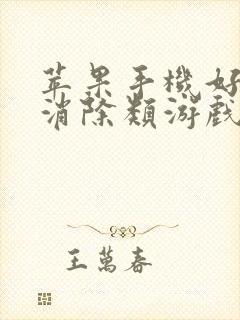 苹果手機好
消除類游戲
王萬春